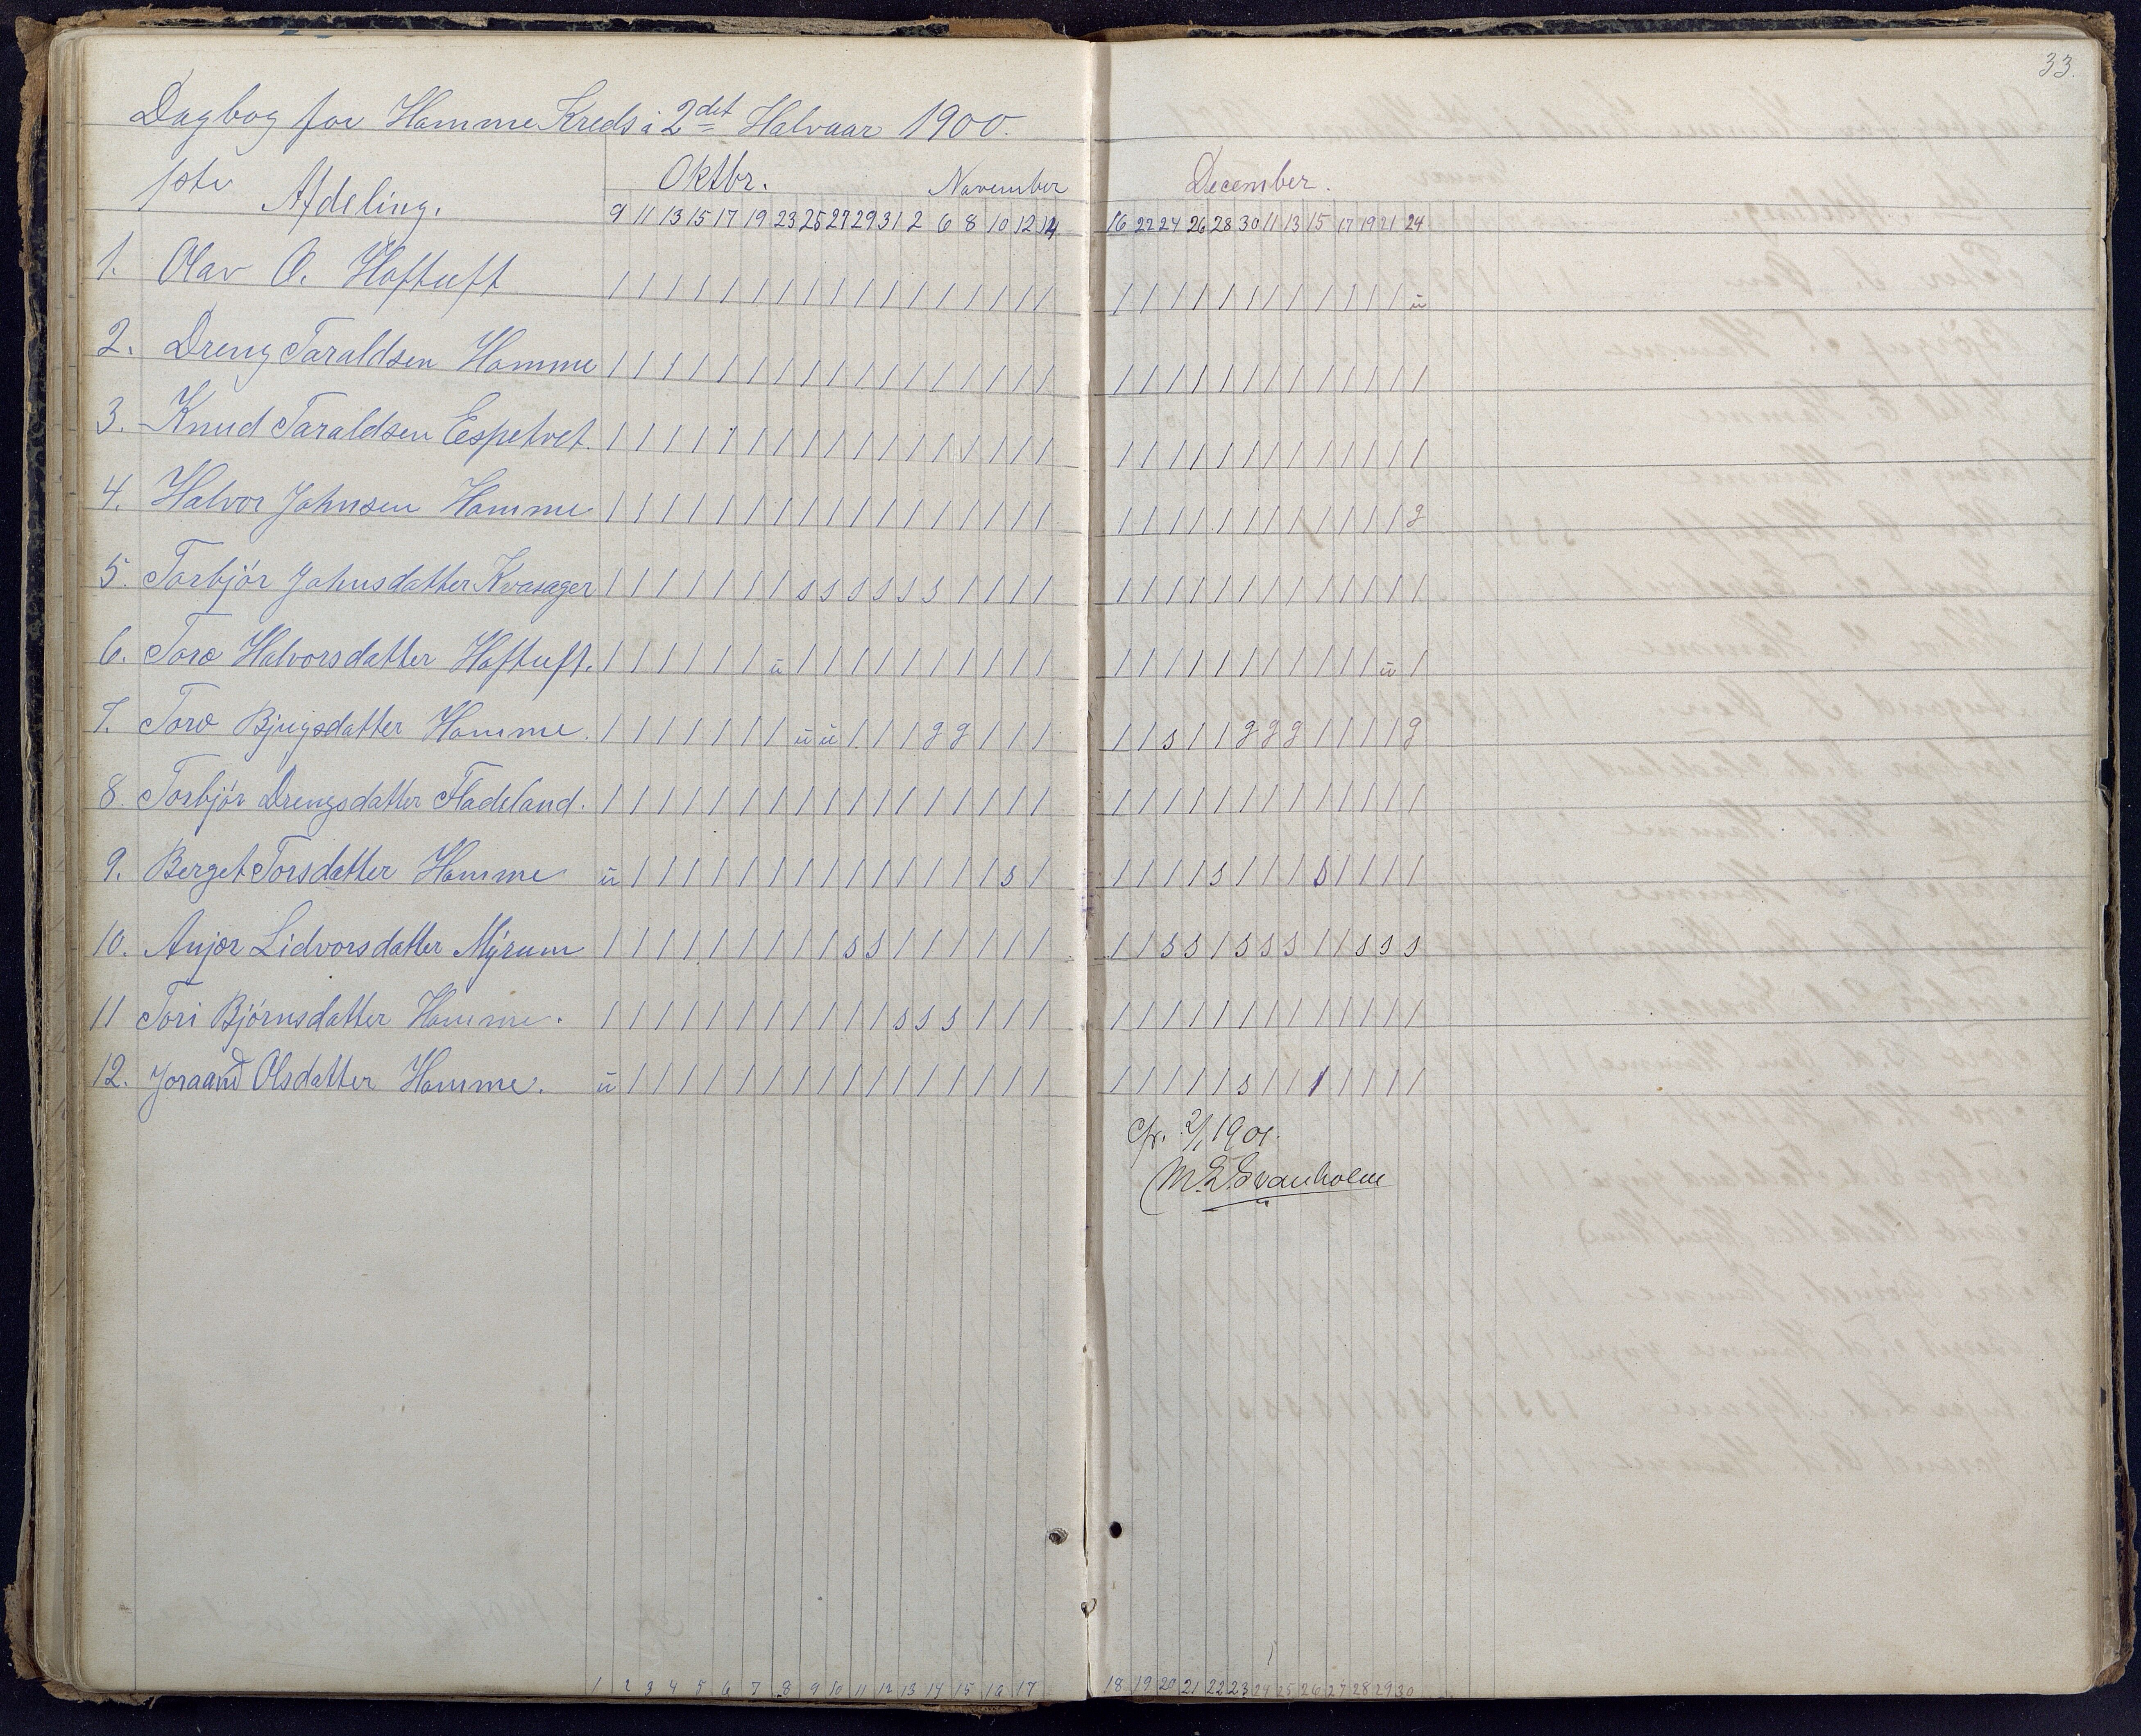 33.
Dagbog for Homme Kreds i 2det Halvaar 1900.
1ste Afdeling.
Oktbr. November
9 11 13 15 17 19 23 25 27 29 31 2 6 8 10 12 14
December.
16 22 24 26 28 30 11 13 15 17 19 21 24
1. Olav O. Hoftuft / / / / / / / / / / / / / / / / / / / / / / / / / / / / / ü
2. Dreng Taraldsen Homme / / / / / / / / / / / / / / / / / / / / / / / / / / / / / /
3. Knud Taraldsen Espetvet. / / / / / / / / / / / / / / / / / / / / / / / / / / / / / /
4. Halvor Johnsen Homme / / / / / / / / / / / / / / / / / / / / / / / / / / / / / g
5. Torbjór Johnsdatter Kvasager / / / / / / / / s s s s s s / / / / / / / / / / / / / / / / /
6. Toro Halvorsdatter Hoftuft. / / / / / / / ü / / / / / / / / / / / / / / / / / / / / / ü /
7. Toro Bjugsdatter Homme. / / / / / / / / ü ü / / / g g / / / / / s / / g g g / / / / g
8. Torbjór Drengsdatter Fladeland. / / / / / / / / / / / / / / / / / / / / / / / / / / / / / /
9. Berget Torsdatter Homme ü / / / / / / / / / / / / / / / s / / / / / s / / / s / / / /
10. Anjor Lidvorsdatter Mýrum / / / / / / / / / / s s / / / / / / / / s s / s s s / / s s s
11 Tori Bjórnsdatter Homme. / / / / / / / / / / / / s s s / / / / / / / / / / / / / / / / /
12. Joraand Olsdatter Homme. ü / / / / / / / / / / / / / / / / / / / / / / s / / / / / / /
Cfr. 2/1 1901.
M. E. Svanholm
1 2 3 4 5 6 7 8 9 10 11 12 13 14 15 16 17
18 19 20 21 22 23 24 25 26 27 28 29 30